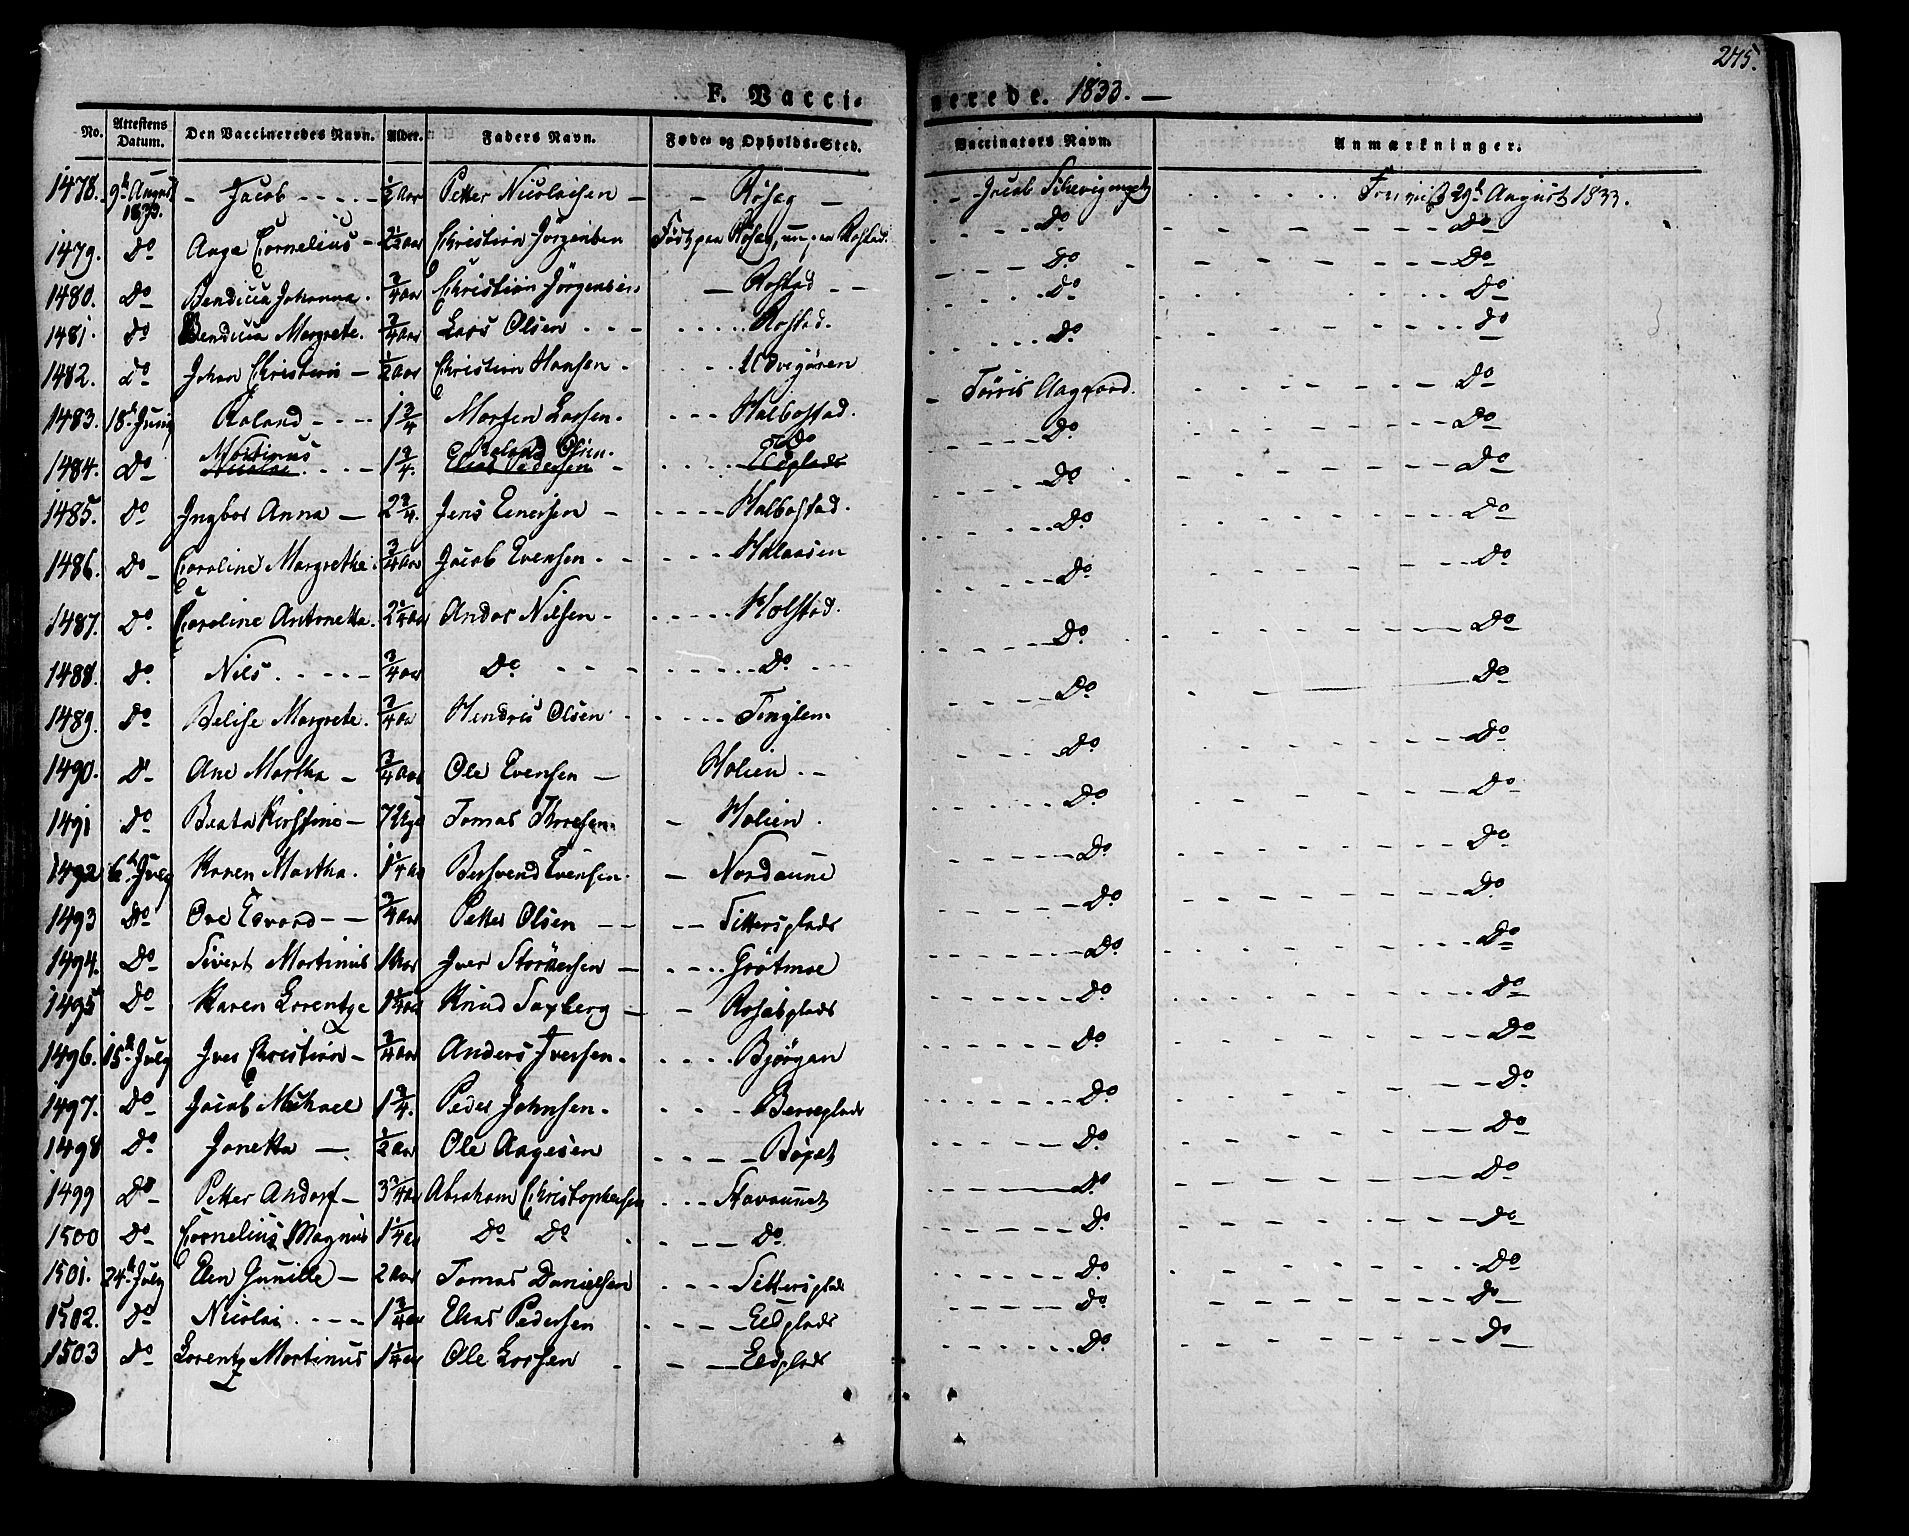 245.
F. Vaccinerede. 1833. —
No. Attestens Datum. Den Vaccineredes Navn. Alder. Faders Navn. Føde- og Opholds-Sted. Vaccinators Navn. Anmærkninger.
1478. 9h August 1833. Jacob 1/2 Aar Petter Nicolaisen Røseg Jacob 29h August 1833.
1479. Do Aage Cornelius 2 1/2 Aar Christian Jörgensen Födt paa Røseg, nu paa Rostad. Do Do
1480. Do Bendicta Johanna. 3/4 Aar Christian Jörgensen Rostad Do Do
1481. do Bendicta Margrete. 3/4 Aar Lars Olsen Rostad. Do Do
1482. do Johan Christian 1/2 Aar Christian Hansen Do do
1483. 18h Juny Roland 1 3/4 Morten Larsen. Halbostad. Tørris Aagaard. Do
1484. Do Martinus Nicolai. 1 3/4. Roland Olsen. Elias Pedersen Do Eldplads Do Do
1485. do Ingbor Anna 2 3/4. Jens Einersen Halbostad. Do Do
1486. Do Caroline Margretha. 3/4 Aar Jacob Evensen Halaasen Do Do
1487. Do. Caroline Antonetta. 2 1/4 Aar Andas Nilsen Holstad. Do Do
1488. Do. Nils 3/4 Aar Do Do Do Do
1489. Do Belise Margrete. 3/4 Aar Hendric Olsen Tinglem Do Do
1490. D Ane Martha 3/4 Aar Ole Evensen Holien Do Do
1491 Do Beata Kirstine 7 Uger Tomas Thoresen. Holien Do Do
1492 6h July Karen Martha. 1 1/4 Aar Bersvend Evensen. Nordaune Do Do
1493 Do Ove Edvard 3/4 Aar Petter Olsen Tittersplads Do Do
1494. Do Sivert Martinus 1 Aar Iver Störkersen Grötmoe Do Do
1495 Do Karen Lorentze 1 1/4 Aar Knud Saxberg Rosetplads Do Do
1496. 15h July Iver Christian 3/4 Aar Anders Iversen. Bjørgan Do Do
1497. Do Jacob Michael 1 3/4. Peder Johnsen. Bergeplads Do Do
1498 Do Janetta 1/2 Aar Ole Aagesen Böget Do Do
1499 Do Petter Andorf 3 3/4 Aar Abraham Christophersen Stavaunet Do Do
1500 Do Cornelius Magnus 1 1/4 Aar Do Do Do. Do Do
1501. 24h July Elen Gunille 2 Aar Tomas Danielsen Tittersplads Do Do
1502. Do Nicolai 1 3/4 Aar Elias Pedersen Eldplads Do Do
1503 Do Lorentz Martinus 1 1/4 Aar Ole Larsen Eldplads Do Do